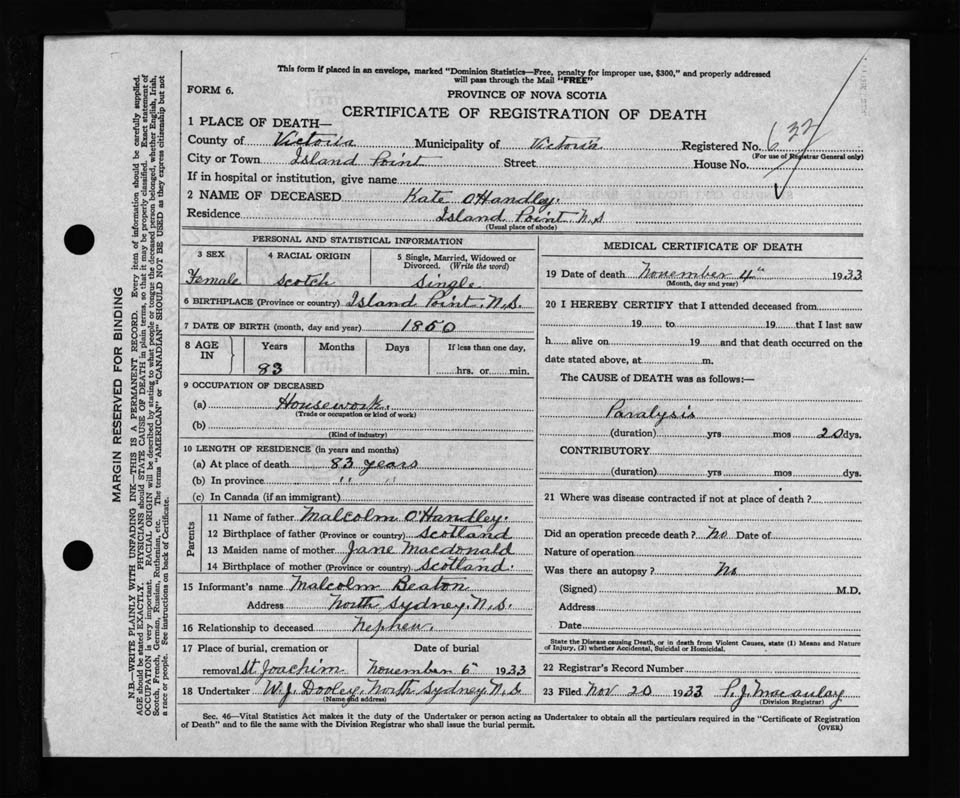 This form if placed in an envelope, marked "Dominion Statistics—Free, penalty for improper use, $300," and properly addressed
will pass through the Mail "FREE"
FORM 6.
PROVINCE OF NOVA SCOTIA
CERTIFICATE OF REGISTRATION OF DEATH
1 PLACE OF DEATH—
County of Victoria Municipality of Victoria Registered No. 632
(For use of Registrar General only)
City or Town Island Point Street House No.
If in hospital or institution, give name
2 NAME OF DECEASED Kate O'Handley.
Residence Island Point N.S
(Usual place of abode)
PERSONAL AND STATISTICAL INFORMATION
3 SEX 4 RACIAL ORIGIN 5 Single, Married, Widowed or
Divorced. (Write the word)
Female Scotch Single
6 BIRTHPLACE (Province or country) Island Point. N.S.
7 DATE OF BIRTH (month, day and year) 1850
8 AGE IN Years Months Days If less than one day,
83 hrs. or min.
9 OCCUPATION OF DECEASED
(a) Housework.
(Trade or occupation or kind of work)
(b)
(Kind of industry)
10 LENGTH OF RESIDENCE (in years and months)
(a) At place of death 83 years
(b) In province " "
(c) In Canada (if an immigrant)
Parents
11 Name of father Malcolm O'Handley.
12 Birthplace of father (Province or country) Scotland
13 Maiden name of mother Jane Macdonald
14 Birthplace of mother (Province or country) Scotland.
15 Informant's name Malcolm Beaton
Address North Sydney, N.S.
16 Relationship to deceased Nephew.
17 Place of burial, cremation or Date of burial
removal St. Joachim November 6" 1933
18 Undertaker W. J. Dooley, North Sydney N.S
(Name and address)
MEDICAL CERTIFICATE OF DEATH
19 Date of death November 4" 1933
(Month, day and year)
20 I HEREBY CERTIFY that I attended deceased from
19 to 19 that I last saw
h alive on 19 and that death occurred on the
date stated above, at m.
The CAUSE of DEATH was as follows:—
Paralysis
(duration) yrs mos 20 dys.
CONTRIBUTORY
(duration) yrs mos dys.
21 Where was disease contracted if not at place of death?
Did an operation precede death? No Date of
Nature of operation
Was there an autopsy? No
(Signed) M.D.
Address
Date
State the Disease causing Death, or in death from Violent Causes, state (1) Means and Nature
of Injury, (2) whether Accidental, Suicidal or Homicidal.
22 Registrar's Record Number
23 Filed Nov 20 1933 P. J. Macaulay
(Division Registrar)
Sec. 46—Vital Statistics Act makes it the duty of the Undertaker or person acting as Undertaker to obtain all the particulars required in the "Certificate of Registration
of Death" and to file the same with the Division Registrar who shall issue the burial permit.
(OVER)
MARGIN RESERVED FOR BINDING
N.B.—WRITE PLAINLY WITH UNFADING INK—THIS IS A PERMANENT RECORD. Every item of information should be carefully supplied.
AGE should be stated EXACTLY. PHYSICIANS should STATE CAUSE OF DEATH in plain terms, so that it may be properly classified. Exact statement of
OCCUPATION is very important. RACIAL ORIGIN will be described by stating to what people or tongue the deceased person belonged, whether English, Irish,
Scotch, French, German, Russian, Ruthenian, etc. The terms "AMERICAN" or "CANADIAN" SHOULD NOT BE USED as they express citizenship but not
a race or people. See instructions on back of Certificate.